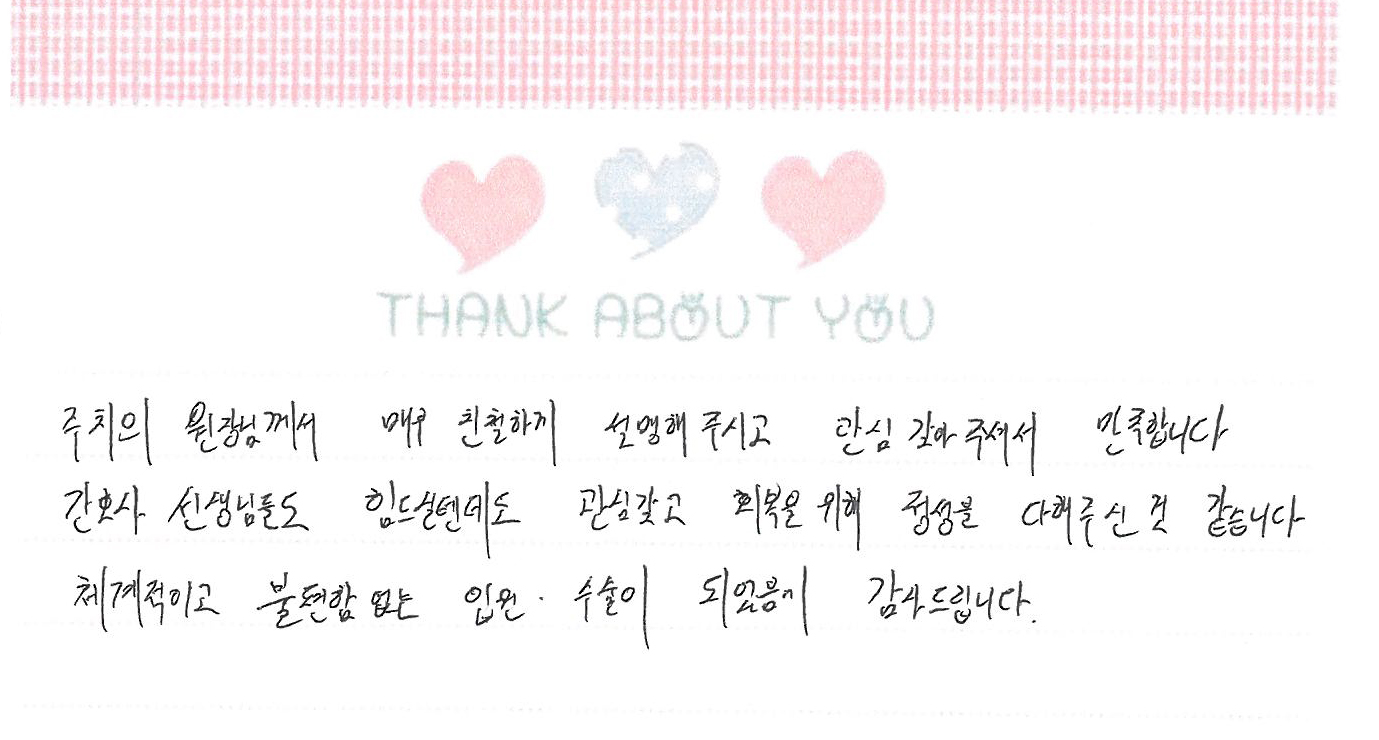 THANK ABOUT YOU
주치의 원장님께서 매우 친절하게 설명해 주시고 관심 갖아 주셔서 만족합니다
간호사 선생님들도 힘드실텐데도 관심갖고 회복을 위해 정성을 다해주신 것 같습니다
체계적이고 불편함 없는 입원 · 수술이 되었음에 감사드립니다.